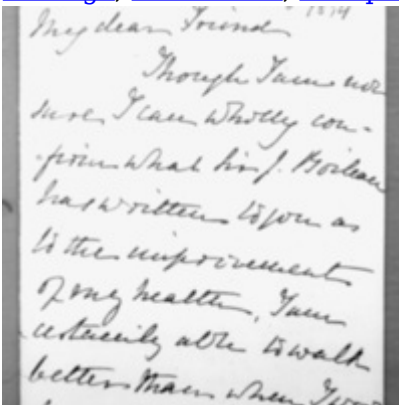 1874
My dear Friend
Though I am not
sure I can wholly con-
firm what Sir J. Boileau
has written to you as
to the improvement
of my health, I am
certainly able to walk
better than when I was